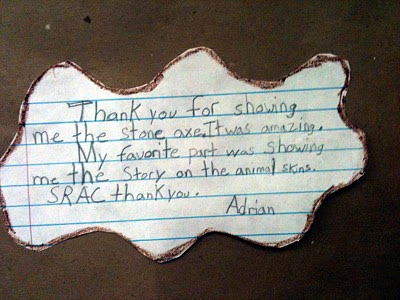 Thank you for showing
me the stone axe. It was amazing.
My favorite part was showing
me the story on the animal skins.
SRAC thank you.
Adrian